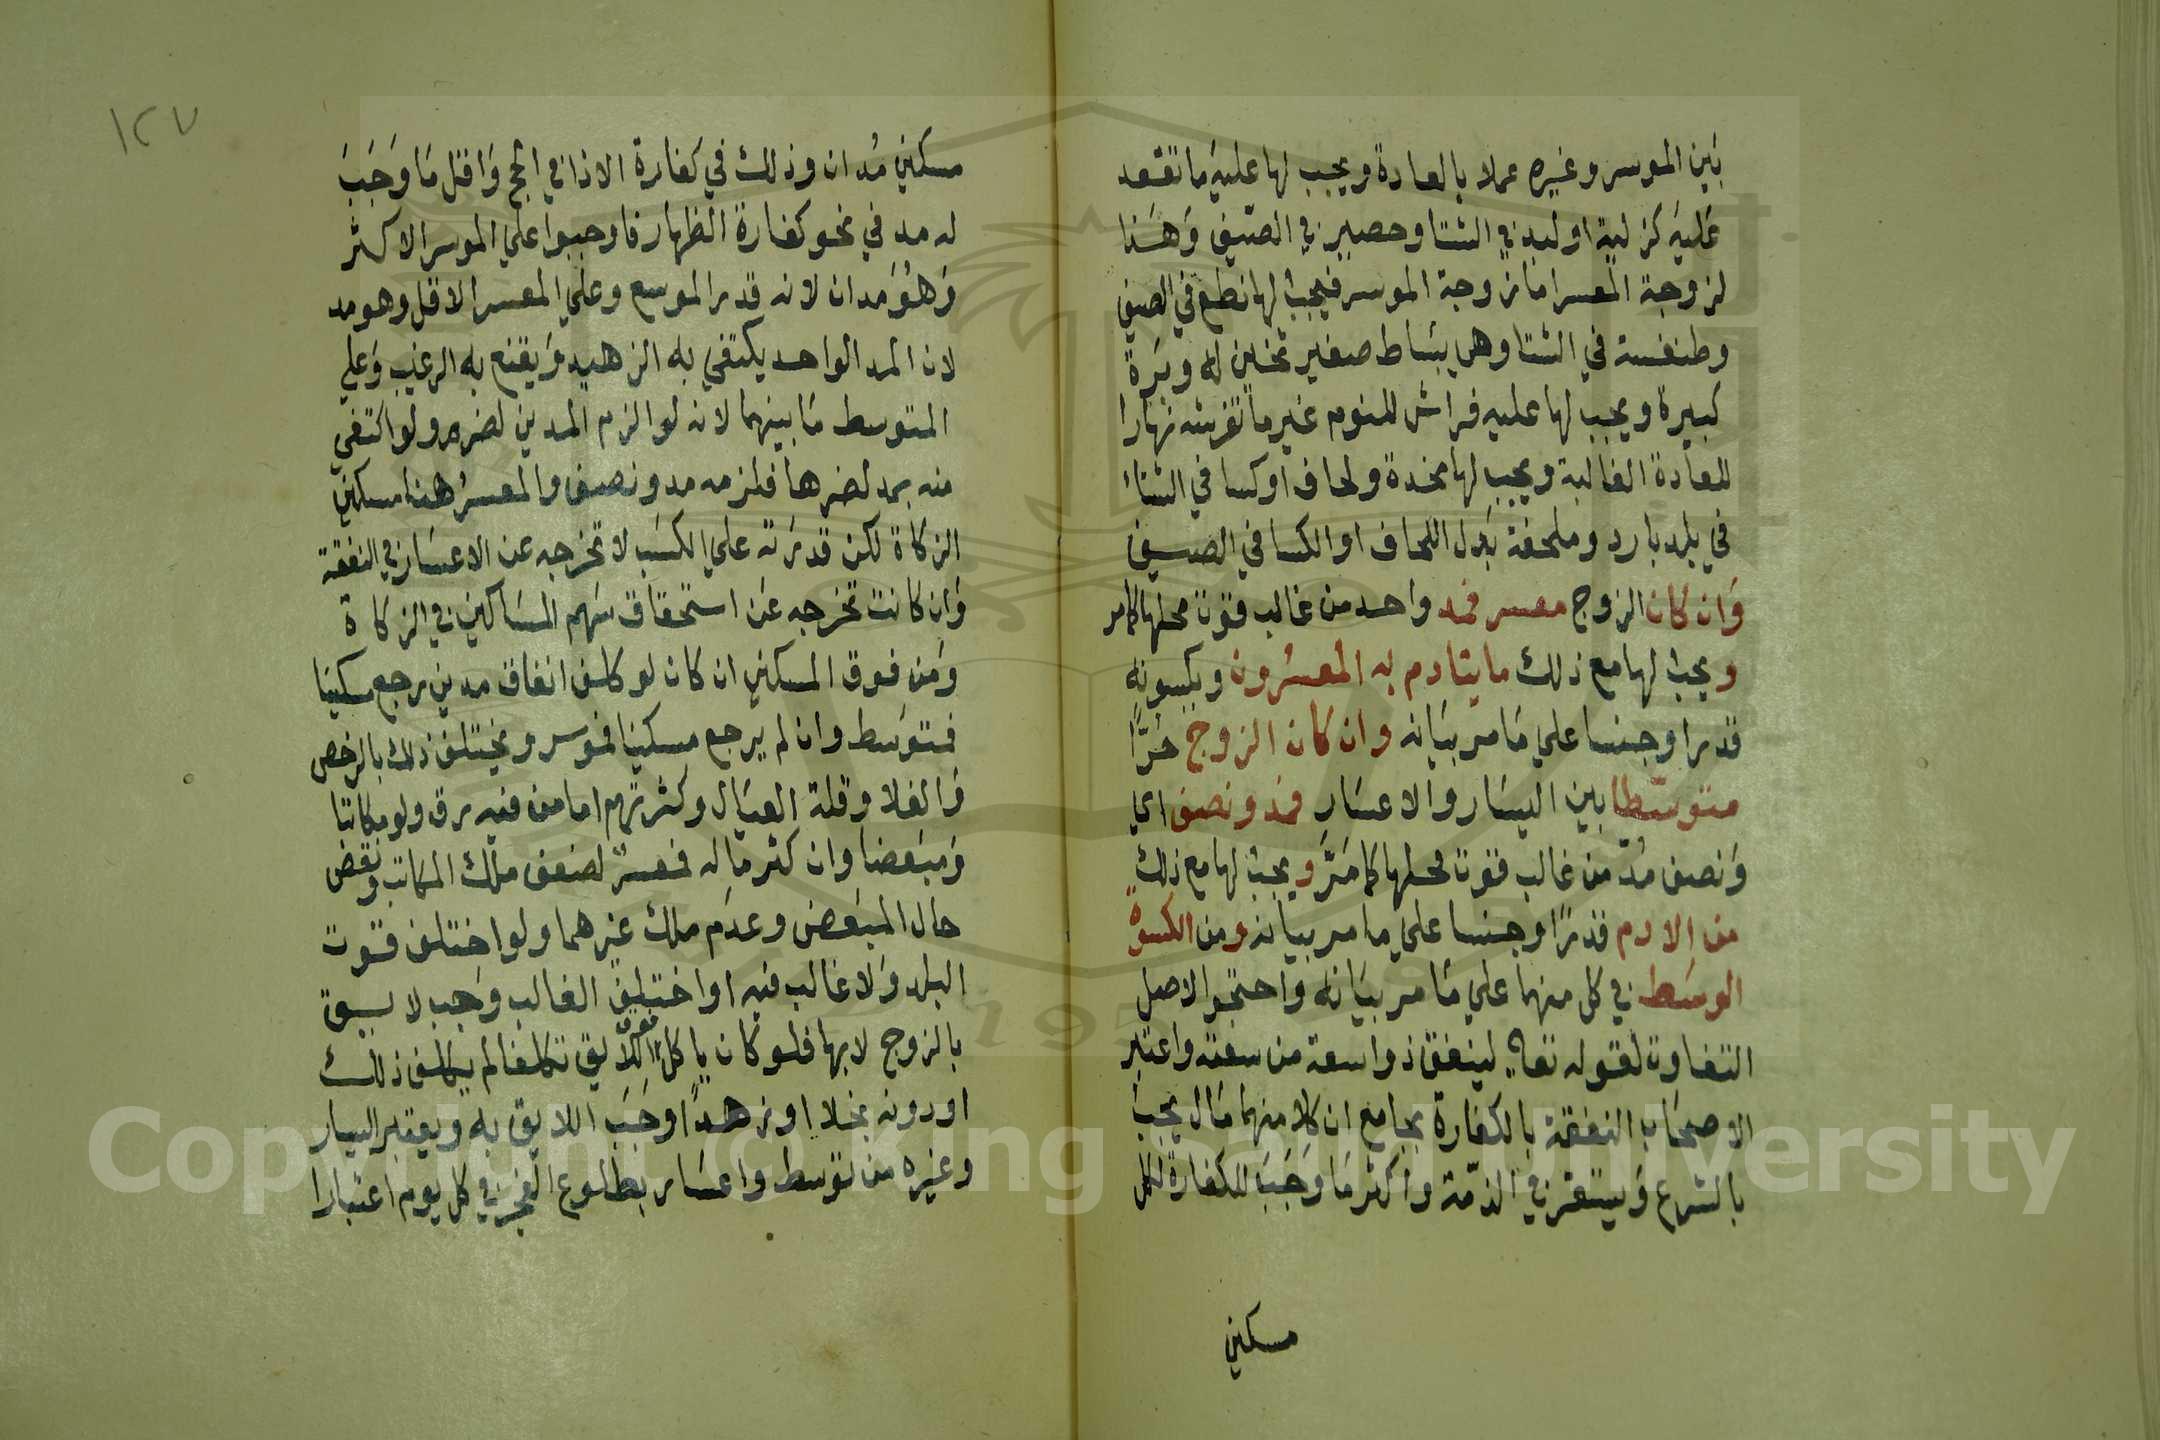 بين الموسر وغيره عملا بالعادة ويجب لها عليه ما تقعد
عليه كزلية او لبد في الشتا وحصير في الصيف وهذا
لزوجة المعسر اما زوجة الموسر فيجب لها نطع في الصيف
وطنفسة في الشتا وهي بساط صغير ثخين له وبرة
كبيرة ويجب لها عليه فراش للنوم غير ما تفرشه نهارا
للعادة الغالبة ويجب لها مخدة ولحاف او كسا في الشتاء
في بلد بارد وملحفة بدل اللحاف او الكسا في الصيف
وان كان الزوج معسر فمد واحد من غالب قوت محلها كما مر
ويجب لها مع ذلك ما يتادم به المعسرون ويكسونه
قدرا وجنسا على ما مر بيانه وان كان الزوج حرا
متوسطا بين اليسار والاعسار فمد ونصف اي
ونصف مد من غالب قوت محلها كما مر ويجب لها مع ذلك
من الادم قدرا وجنسا على ما مر بيانه ومن الكسوة
الوسط في كل منهما على ما مر بيانه واحتجوا لاصل
التفاوت لقوله تعالى لينفق ذو اسعة من سعته واعتبر
الاصحاب النفقة بالكفارة بجامع ان كلا منهما مال يجب
بالشرع ويستقر في الذمة واكثر ما وجب للكفارة لكل
مسكين
١٢٧
مسكين مدان وذلك في كفارة الاذا في الحج واقل ما وجب
له مد في نحو كفارة الظهار فاوجبوا على الموسر الاكثر
وهو مدان لانه قدر الموسع وعلى المعسر الاقل وهو مد
لان المد الواحد يكتفي به الزهيد ويقنع به الرغيب وعلى
المتوسط ما بينهما لانه لو الزم المدين لضره ولو اكتفي
منه بمد لضرها فلزمه مد ونصف والمعسر هنا مسكين
الزكاة لكن قدرته على الكسب لا تخرجه عن الاعسار في النفقة
وان كانت تخرجه عن استحقاق سهم المساكين في الزكاة
ومن فوق المسكين ان كان لو كلف انفاق مدين رجع مسكينا
فمتوسط وان لم يرجع مسكينا فموسر ويختلف ذلك بالرخص
والغلا وقلة العيال وكثرتهم اما من فيه رق ولو مكاتبا
ومبعضا وان كثر ماله فمعسر لضعف ملك المكاتب ونقص
حال المبعض وعدم ملك غيرهما ولو اختلف قوت
البلد ولا غالب فيه او اختلف الغالب وجب لايق
بالزوج لا بها فلو كان ياكل فوق اللايق تكلفا لم يكلف ذلك
او دونه بخلا او زهدا وجب اللايق به ويعتبر اليسار
وغيره من توسط واعسار بطلوع الفجر في كل يوم اعتبارا
Copyright © King Saud University
195